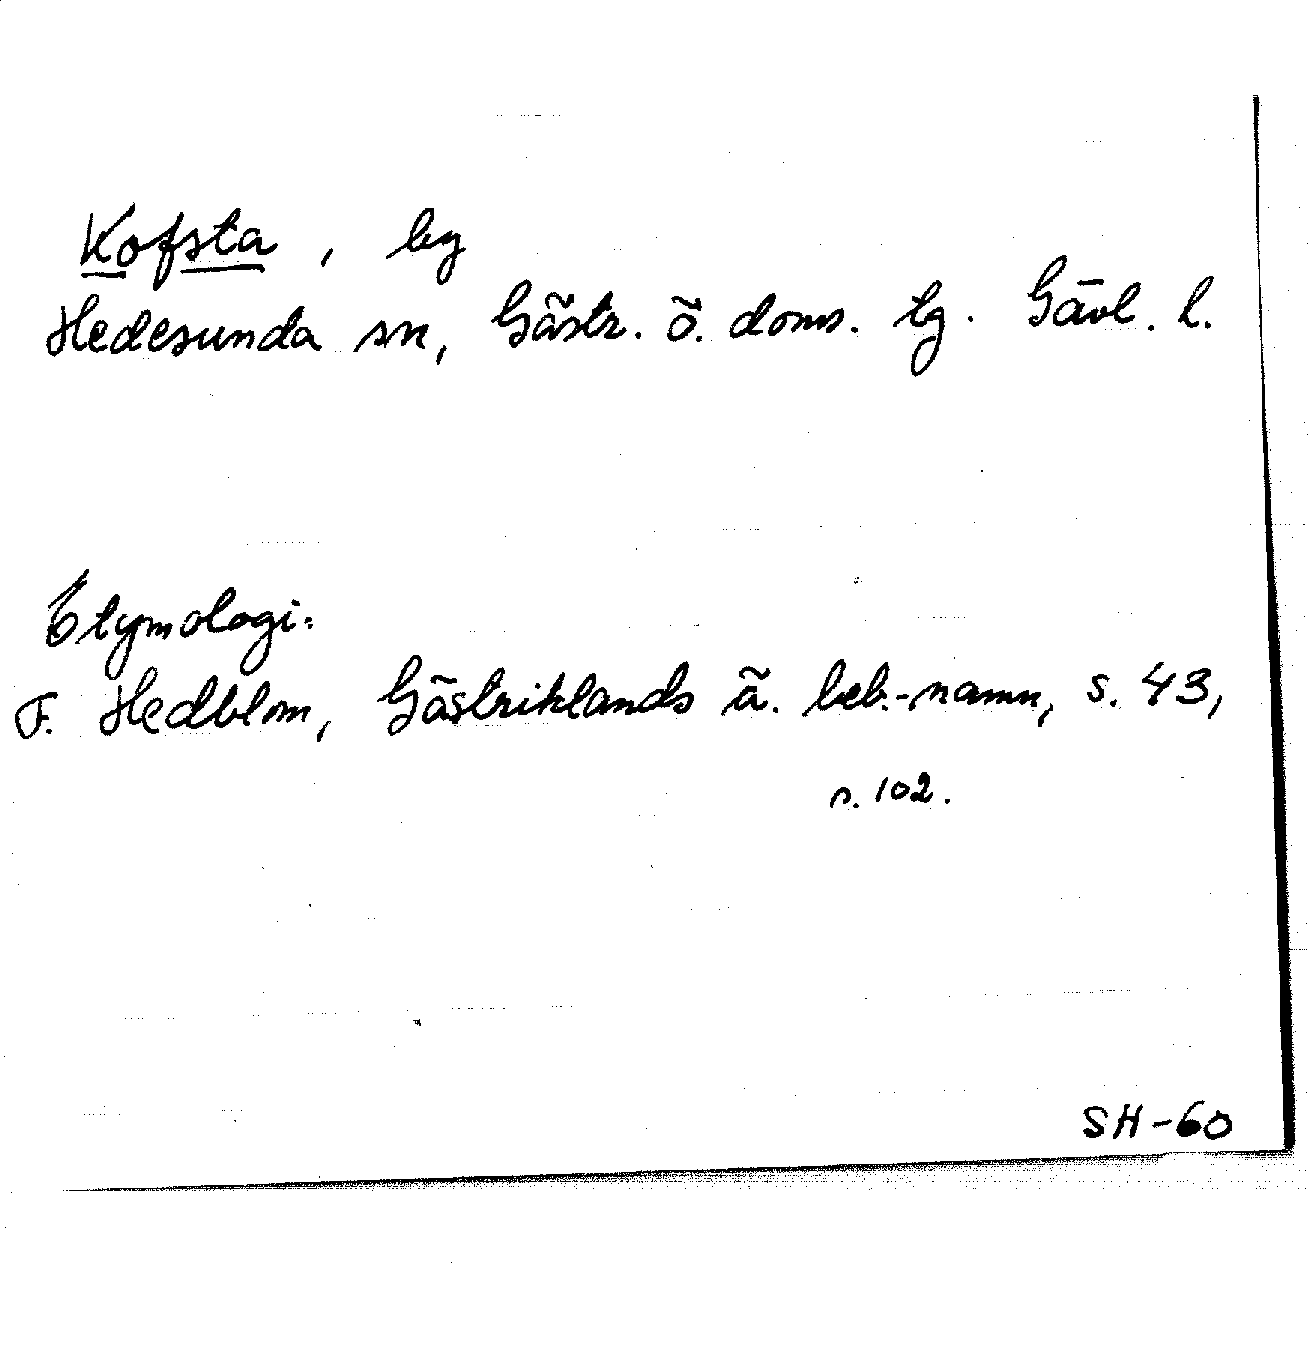 Kofsta, by
Hedesunda sn, Gästr. ö. doms. tg. Gävl. l.
Etymologi:
F. Hedblom, Gästriklands ä. beb.-namn, s. 43,
s. 102.
SH-60